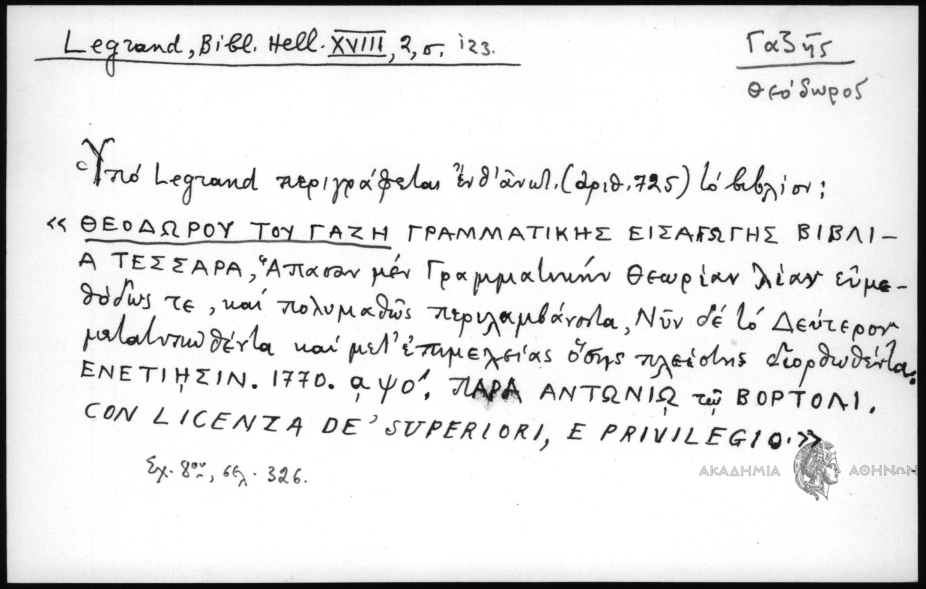 Legrand, Bibl. Hell. XVIII, 2, σ. 123.
Γαζῆς
Θεόδωρος
Ὑπό Legrand περιγράφεται ἐνθ' ἀνωτ. (ἀριθ. 725) τό βιβλίον:
«ΘΕΟΔΩΡΟΥ ΤΟΥ ΓΑΖΗ ΓΡΑΜΜΑΤΙΚΗΣ ΕΙΣΑΓΩΓΗΣ ΒΙΒΛΙ-
Α ΤΕΣΣΑΡΑ, Ἅπασαν μέν Γραμματικήν Θεωρίαν λίαν εὐμε-
θόδως τε, καί πολυμαθῶς περιλαμβάνοντα, Νῦν δέ τό Δεύτερον
μετατυπωθέντα καί μετ' ἐπιμελείας ὅσης πλείστης διορθωθέντα.
ΕΝΕΤΙῌΣΙΝ. 1770. αψο'. ΠΑΡΑ ΑΝΤΩΝΙῼ τῷ ΒΟΡΤΟΛΙ.
CON LICENZA DE' SUPERIORI, E PRIVILEGIO.»
Σχ. 8ον, σελ. 326.
ΑΚΑΔΗΜΙΑ ΑΘΗΝΩΝ